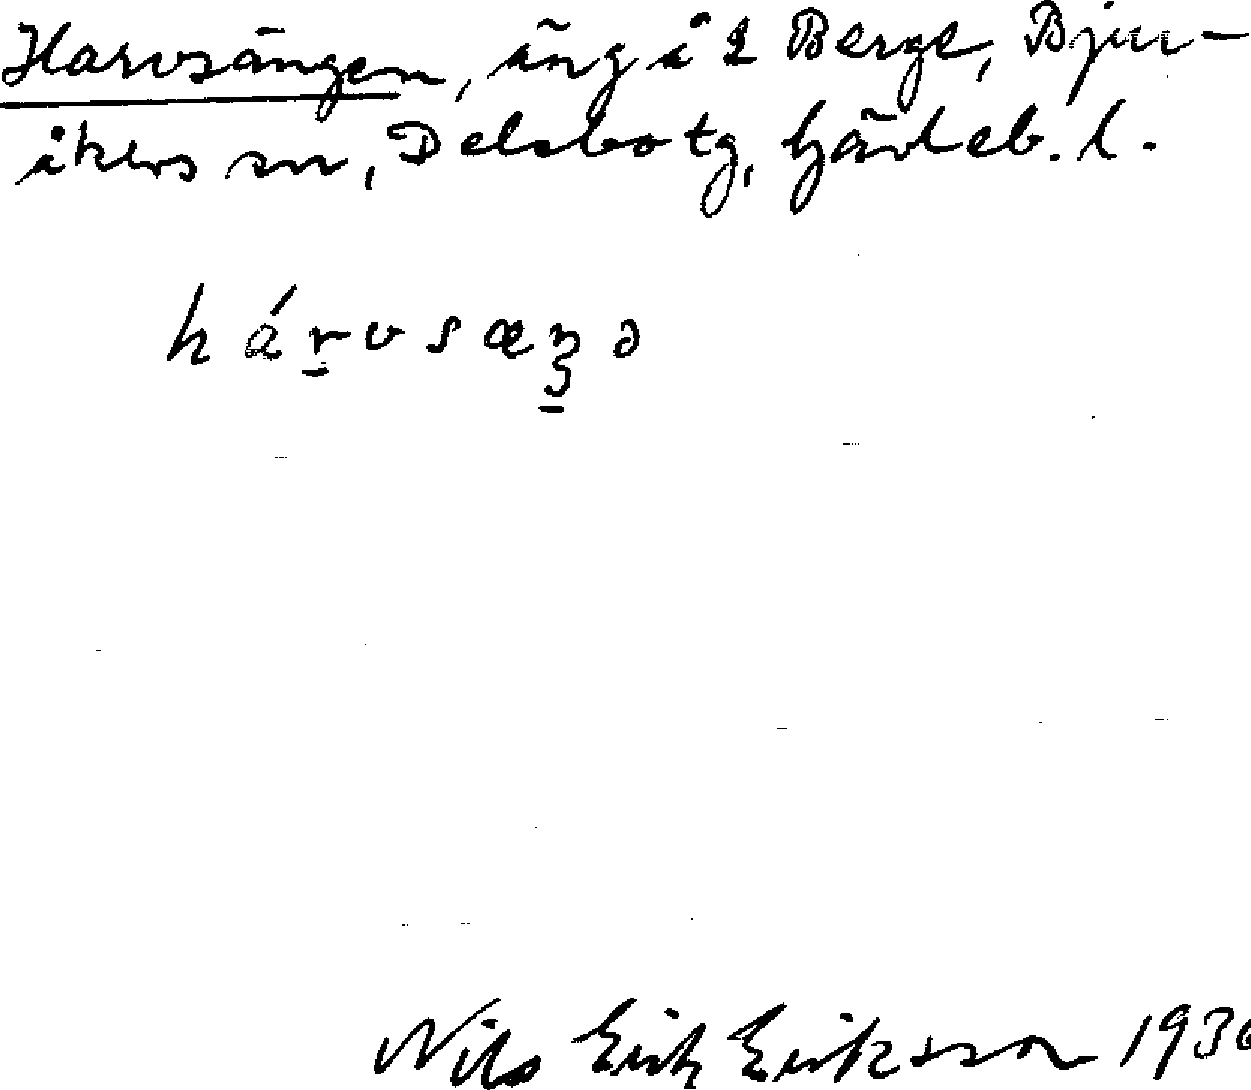 Harvsängen, äng å 2 Berge, Bjur-
åkers sn, Delsbo tg, Gävleb. l.
hárvsæŋə
Nils Erik Eriksson 193